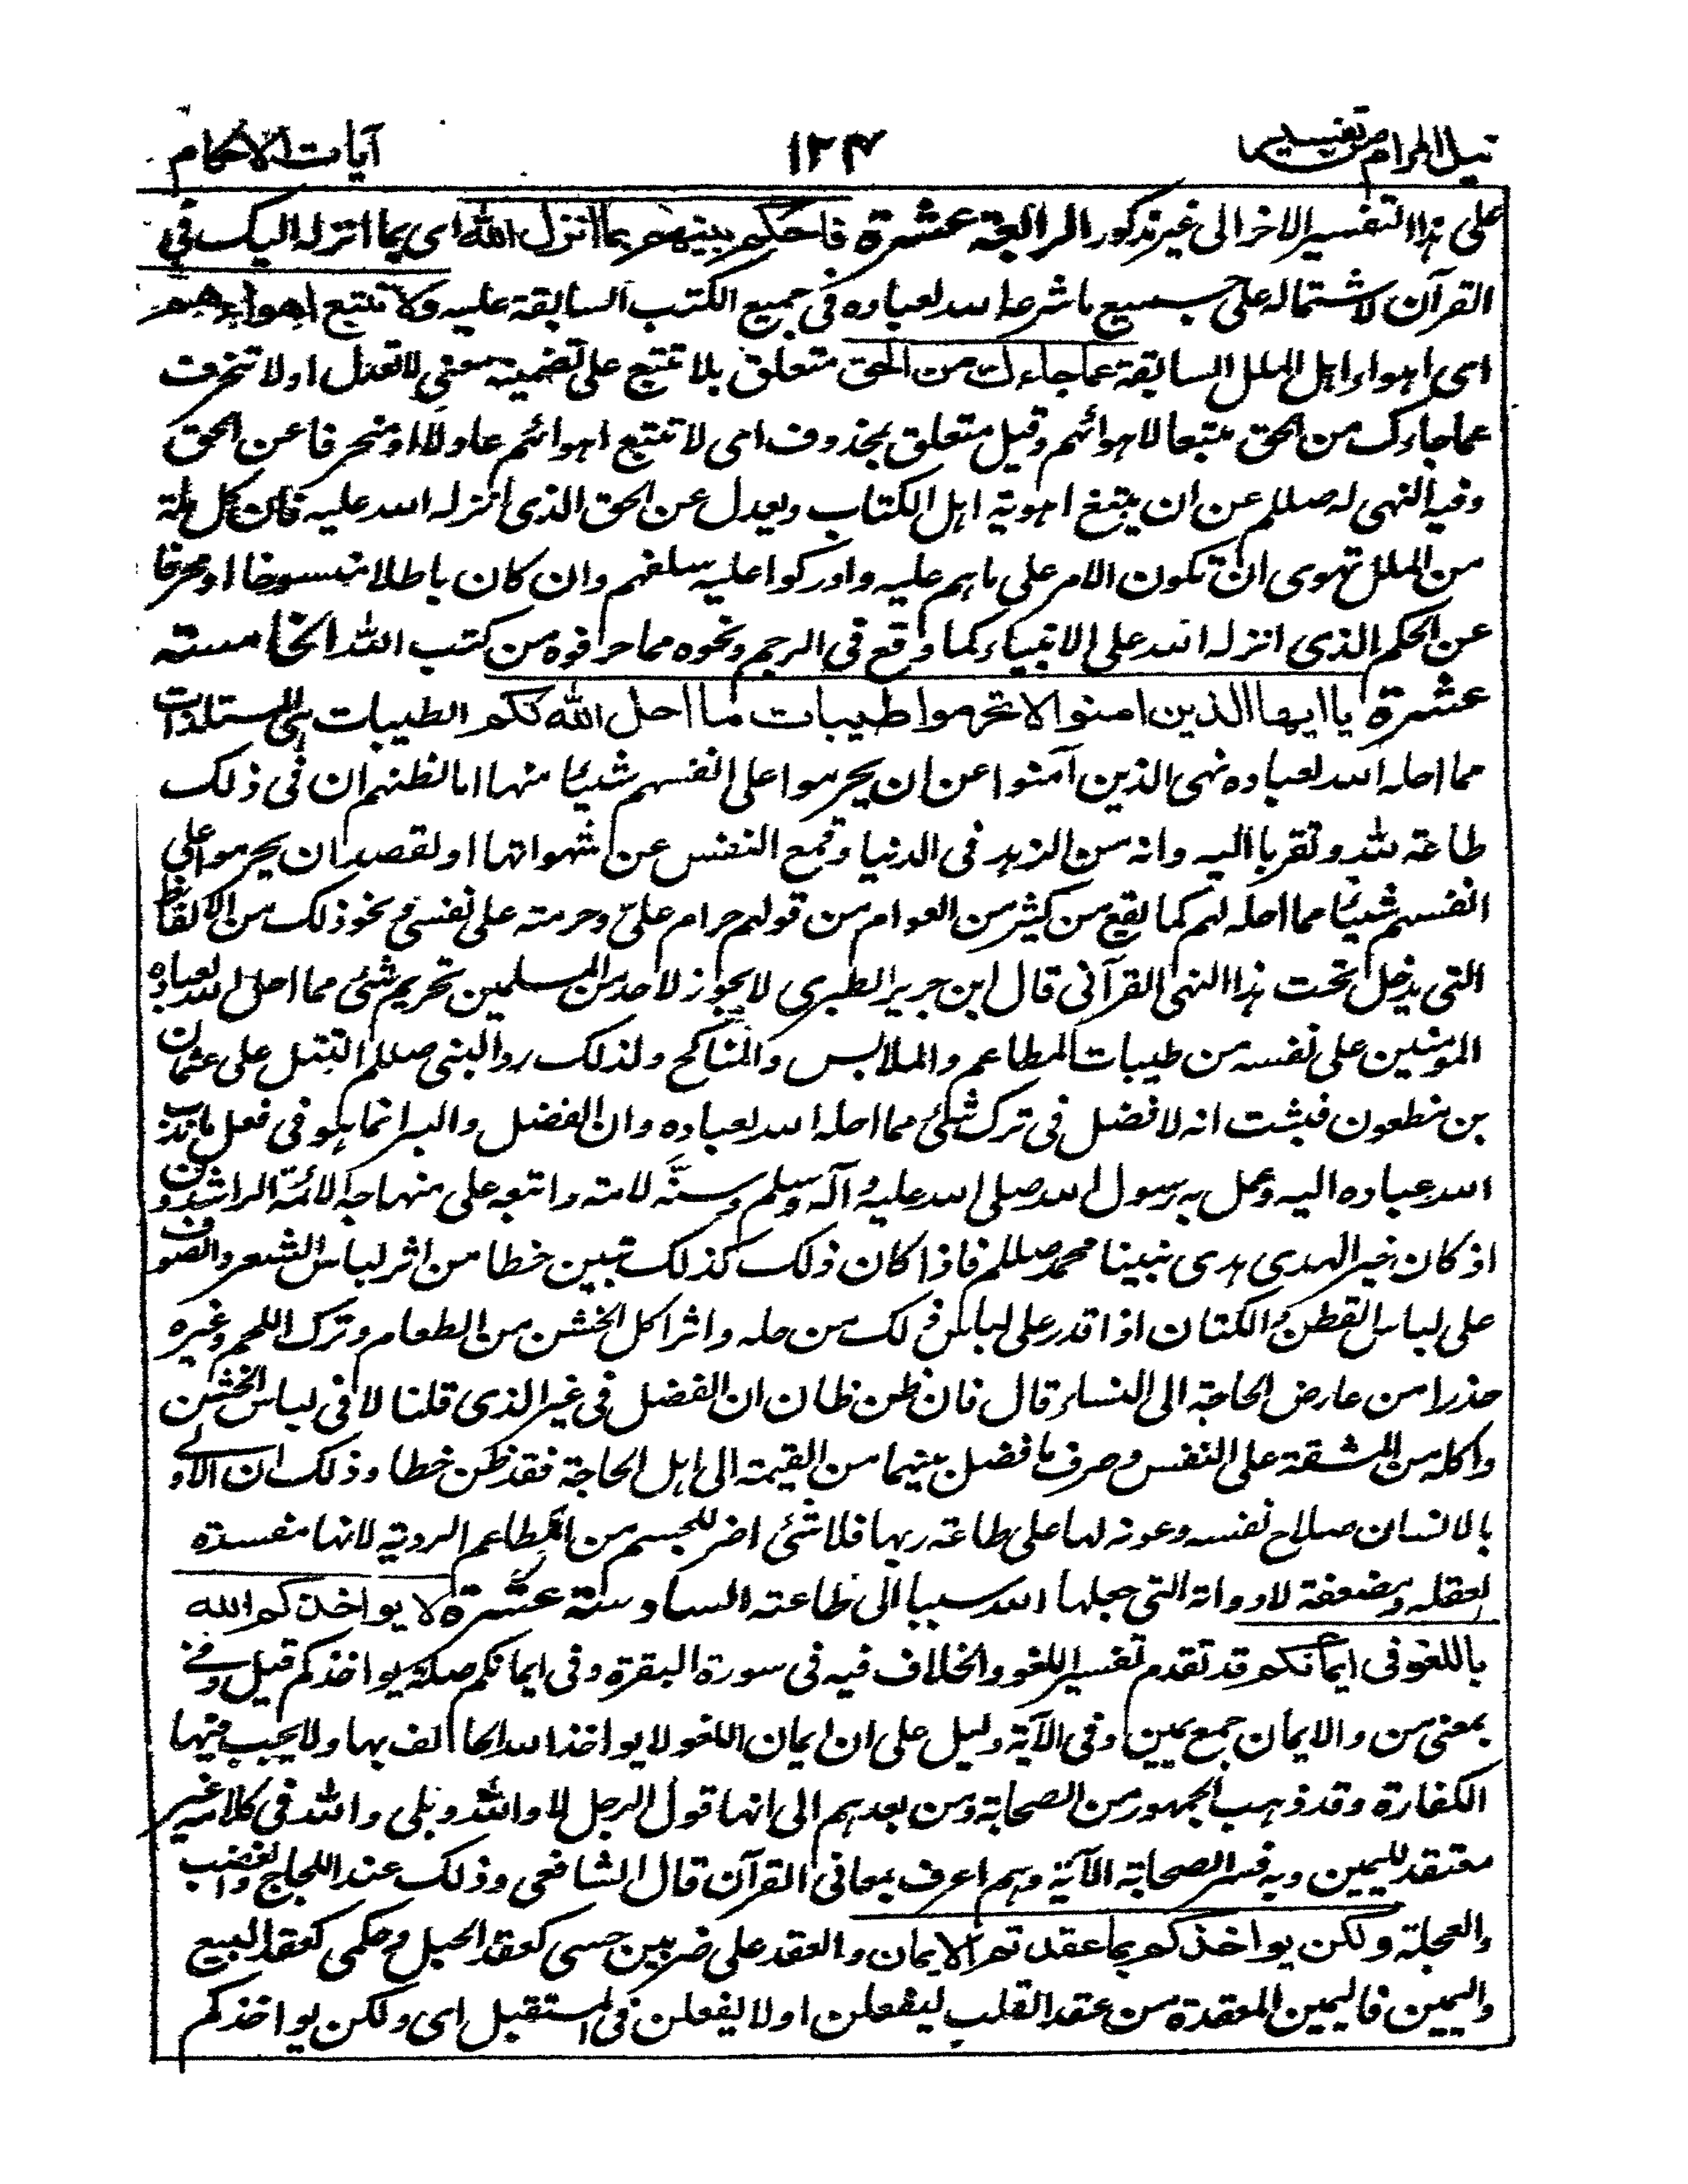 نيل المرام من تفسير ١٢٤ آيات الاحكام
على هذا التفسير الاخر الى غير مذكور الرابعة عشرة فاحكم بينهم بما انزل الله اى بما انزله اليك فى
القرآن لاشتماله على جميع ما شرعه الله لعباده فى جميع الكتب السابقة عليه ولا تتبع اهواءهم
اى اهواء اهل الملل السابقة عما جاءك من الحق متعلق بلا تتبع على تضمينه معنى لا تعدل او لا تنحرف
عما جاءك من الحق متبعا لاهوائهم وقيل متعلق بمحذوف اى لا تتبع اهوائهم عادلا او منحرفا عن الحق
وفيه النهى له صللم عن ان يتبع اهوية اهل الكتاب ويعدل عن الحق الذى انزله الله عليه فان كل ملة
من الملل تهوى ان تكون الامر على ما هم عليه وادركوا عليه سلفهم وان كان باطلا منسوخا او محرفا
عن الحكم الذى انزله الله على الانبياء كما وقع فى الرجم ونحوه مما حرفوه من كتب الله الخامسة
عشرة يا ايها الذين امنوا لا تحرموا طيبات ما احل الله لكم الطيبات هى المستلذات
مما احله الله لعباده نهى الذين آمنوا عن ان يحرموا على انفسهم شيئا منها اما لظنهم ان فى ذلك
طاعة لله وتقربا اليه وانه من الزهد فى الدنيا وقمع النفس عن شهواتها او لقصد ان يحرموا على
انفسهم شيئا مما احله لهم كما يقع من كثير من العوام من قولهم حرام علىّ وحرمته على نفسى ونحو ذلك من الالفاظ
التى يدخل تحت هذا النهى القرآنى قال ابن جرير الطبرى لا يجوز لاحد من المسلمين تحريم شئ مما احل الله لعباده
المومنين على نفسه من طيبات المطاعم والملابس والمناكح ولذلك رد النبى صللم التبتل على عثمان
بن مظعون فثبت انه لا فضل فى ترك شئ مما احله الله لعباده وان الفضل والبر انما هو فى فعل ما ندب
الله عباده اليه وعمل به رسول الله صلى الله عليه وآله وسلم وسنّه لامته واتبعه على منهاجه الائمة الراشدون
اذ كان خير الهدى هدى نبينا محمد صللم فاذا كان ذلك كذلك تبين خطا من اثر لباس الشعر والصوف
على لباس القطن والكتان اذا قدر على لباس ذلك من حله واثر اكل الخشن من الطعام وترك اللحم وغيره
حذرا من عارض الحاجة الى النساء قال فان ظن ظان ان الفضل فى غير الذى قلنا لا فى لباس الخشن
واكله من المشقة على النفس وصرف ما فضل بينهما من القيمة الى اهل الحاجة فقد ظن خطا وذلك ان الاولى
بالانسان صلاح نفسه وعونه لها على طاعة ربها فلا شئ اضر للجسم من المطاعم الردية لانها مفسدة
لعقله ومضعفة لادواته التى جعلها الله سببا الى طاعته السادسة عشرة لا يواخذكم الله
باللغو فى ايمانكم قد تقدم تفسير اللغو والخلاف فيه فى سورة البقرة وفى ايمانكم صلة يواخذكم قيل وفى
بمعنى من والايمان جمع يمين وفى الآية دليل على ان ايمان اللغو لا يواخذ الله الحالف بها ولا يجب فيها
الكفارة وقد ذهب الجمهور من الصحابة ومن بعدهم الى انها قول الرجل لا والله وبلى والله فى كلامه غير
معتقد لليمين وبه فسر الصحابة الآية وهم اعرف بمعانى القرآن قال الشافعى وذلك عند اللجاج والغضب
والعجلة ولكن يواخذكم بما عقدتم الايمان والعقد على ضربين حسى كعقد الحبل وحكمى كعقد البيع
واليمين فاليمين المعقدة من عقد القلب ليفعلن او لا يفعلن فى المستقبل اى ولكن يواخذكم